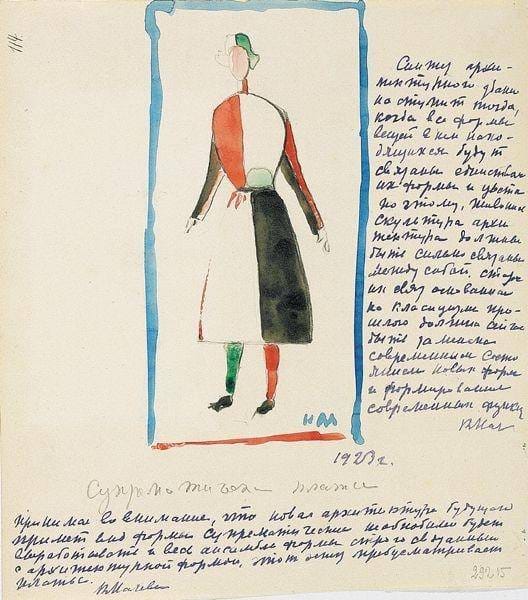 114.
архи-
тектурного здани
наступит тогда,
когда все формы
вещей в нем нахо-
дящихся будут
связаны единством
их формы и цвета
поэтому, живопись
скульптура архи
тектура должны
быть сильно связаны
между собой,
их связ основанная
на класицизме про-
шлого должна
быть заменена
современным состо
янием новых форм
и формирования
современных
КМ
1923 г.
Принимая во внимание, что новая архитектура будущего
примет вид формы супрематические необходимо будет
выработать и весь ансамбль формы строго связанный
с архитектурной формою, этот эскиз предусматривает
платье.